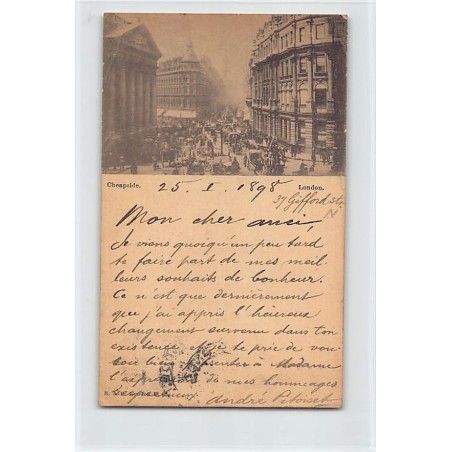 Cheapside. 25. I. 1898 London.
37 Gifford St.
N
Mon cher ami,
Je viens quoiqu'un peu tard
te faire part de mes meil-
leurs souhaits de bonheur.
Ce n'est que dernièrement
que j'ai appris l'heureux
changement survenu dans ton
existence et je te prie de vou-
loir bien présenter à Madame
l'expression de mes hommages
André